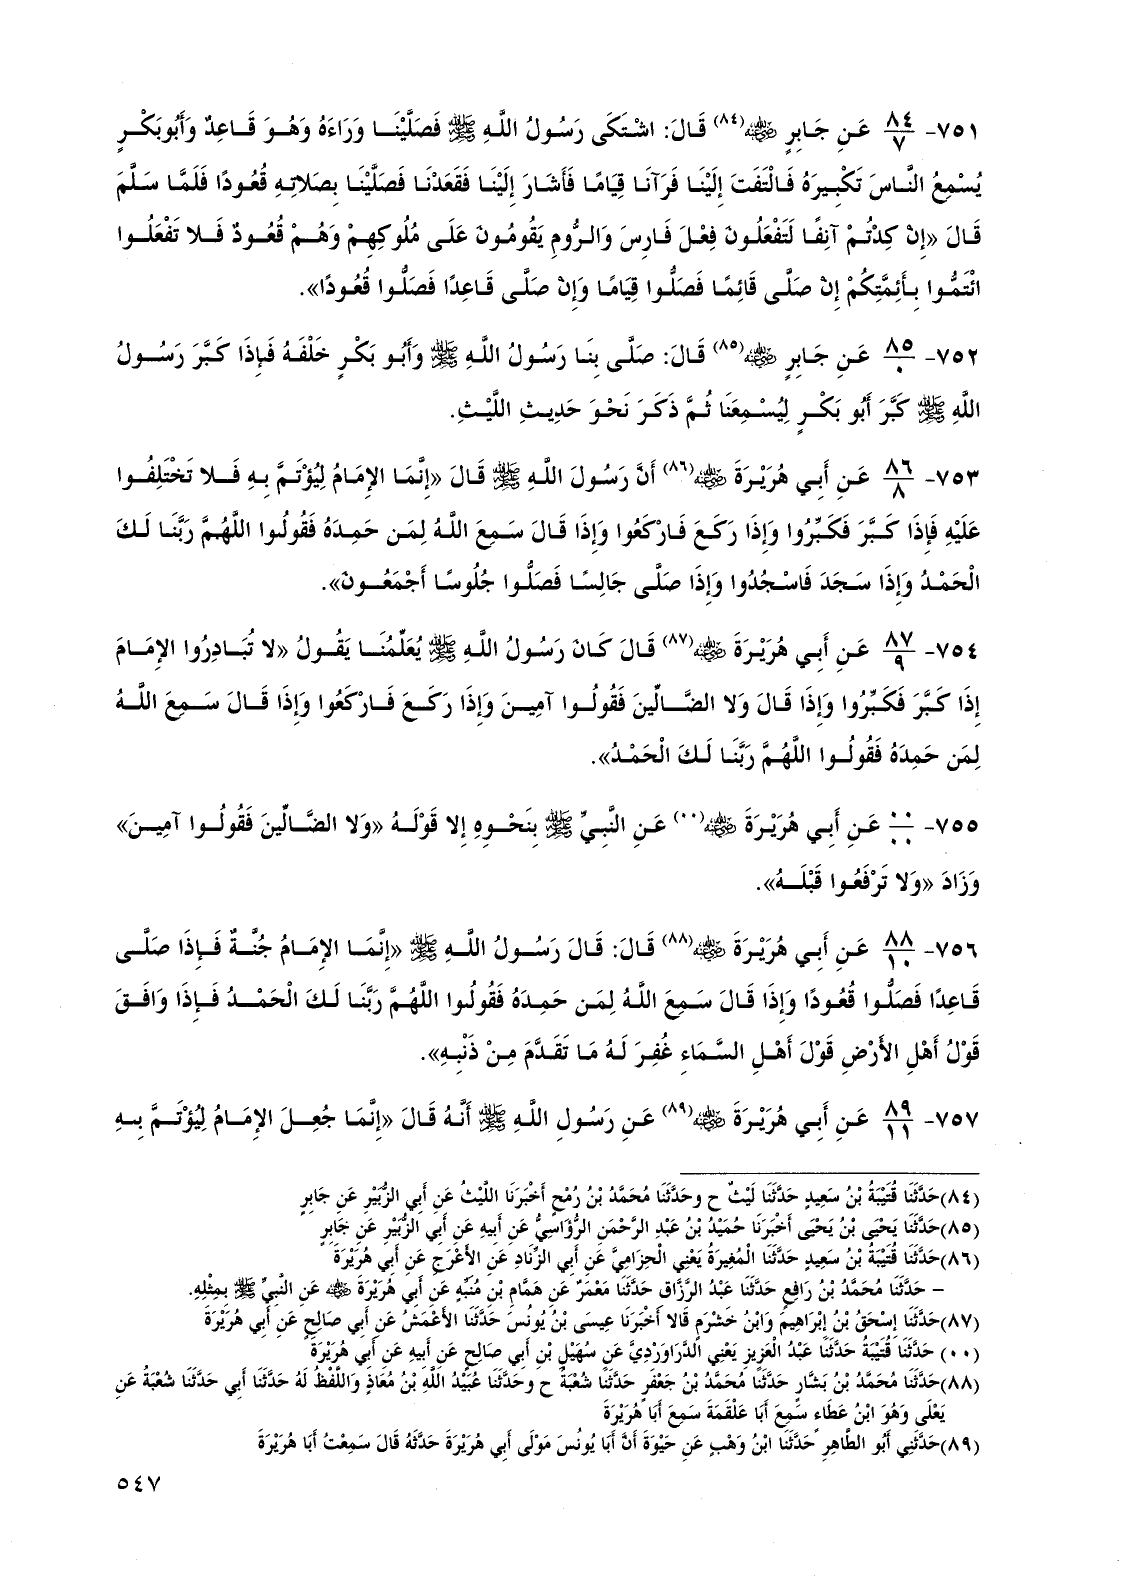 ٧٥١- ٨٤/٧ عَنِ جَابِرٍ ﵁(٨٤) قَالَ: اشْتَكَى رَسُولُ اللَّهِ ﷺ فَصَلَّيْنَا وَرَاءَهُ وَهُوَ قَاعِدٌ وَأَبُوبَكْرٍ
يُسْمِعُ النَّاسَ تَكْبِيرَهُ فَالْتَفَتَ إِلَيْنَا فَرَآنَا قِيَامًا فَأَشَارَ إِلَيْنَا فَقَعَدْنَا فَصَلَّيْنَا بِصَلاتِهِ قُعُودًا فَلَمَّا سَلَّمَ
قَالَ «إِنْ كِدْتُمْ آنِفًا لَتَفْعَلُونَ فِعْلَ فَارِسَ وَالرُّومِ يَقُومُونَ عَلَى مُلُوكِهِمْ وَهُمْ قُعُودٌ فَلا تَفْعَلُوا
ائْتَمُّوا بِأَئِمَّتِكُمْ إِنْ صَلَّى قَائِمًا فَصَلُّوا قِيَامًا وَإِنْ صَلَّى قَاعِدًا فَصَلُّوا قُعُودًا».
٧٥٢- ٨٥/٠ عَنِ جَابِرٍ ﵁(٨٥) قَالَ: صَلَّى بِنَا رَسُولُ اللَّهِ ﷺ وَأَبُو بَكْرٍ خَلْفَهُ فَإِذَا كَبَّرَ رَسُولُ
اللَّهِ ﷺ كَبَّرَ أَبُو بَكْرٍ لِيُسْمِعَنَا ثُمَّ ذَكَرَ نَحْوَ حَدِيثِ اللَّيْثِ.
٧٥٣- ٨٦/٨ عَنِ أَبِي هُرَيْرَةَ ﵁(٨٦) أَنَّ رَسُولَ اللَّهِ ﷺ قَالَ «إِنَّمَا الإِمَامُ لِيُؤْتَمَّ بِهِ فَلا تَخْتَلِفُوا
عَلَيْهِ فَإِذَا كَبَّرَ فَكَبِّرُوا وَإِذَا رَكَعَ فَارْكَعُوا وَإِذَا قَالَ سَمِعَ اللَّهُ لِمَن حَمِدَهُ فَقُولُوا اللَّهُمَّ رَبَّنَا لَكَ
الْحَمْدُ وَإِذَا سَجَدَ فَاسْجُدُوا وَإِذَا صَلَّى جَالِسًا فَصَلُّوا جُلُوسًا أَجْمَعُونَ».
٧٥٤- ٨٧/٩ عَنِ أَبِي هُرَيْرَةَ ﵁(٨٧) قَالَ كَانَ رَسُولُ اللَّهِ ﷺ يُعَلِّمُنَا يَقُولُ «لا تُبَادِرُوا الإِمَامَ
إِذَا كَبَّرَ فَكَبِّرُوا وَإِذَا قَالَ وَلا الضَّالِّينَ فَقُولُوا آمِينَ وَإِذَا رَكَعَ فَارْكَعُوا وَإِذَا قَالَ سَمِعَ اللَّهُ
لِمَن حَمِدَهُ فَقُولُوا اللَّهُمَّ رَبَّنَا لَكَ الْحَمْدُ».
٧٥٥- ٠٠/٠٠ عَنِ أَبِي هُرَيْرَةَ ﵁(٠٠) عَنِ النَّبِيِّ ﷺ بِنَحْوِهِ إِلا قَوْلَهُ «وَلا الضَّالِّينَ فَقُولُوا آمِينَ»
وَزَادَ «وَلا تَرْفَعُوا قَبْلَهُ».
٧٥٦- ٨٨/١٠ عَنِ أَبِي هُرَيْرَةَ ﵁(٨٨) قَالَ: قَالَ رَسُولُ اللَّهِ ﷺ «إِنَّمَا الإِمَامُ جُنَّةٌ فَإِذَا صَلَّى
قَاعِدًا فَصَلُّوا قُعُودًا وَإِذَا قَالَ سَمِعَ اللَّهُ لِمَن حَمِدَهُ فَقُولُوا اللَّهُمَّ رَبَّنَا لَكَ الْحَمْدُ فَإِذَا وَافَقَ
قَوْلُ أَهْلِ الأَرْضِ قَوْلَ أَهْلِ السَّمَاءِ غُفِرَ لَهُ مَا تَقَدَّمَ مِنْ ذَنْبِهِ».
٧٥٧- ٨٩/١١ عَنِ أَبِي هُرَيْرَةَ ﵁(٨٩) عَنِ رَسُولِ اللَّهِ ﷺ أَنَّهُ قَالَ «إِنَّمَا جُعِلَ الإِمَامُ لِيُؤْتَمَّ بِهِ
(٨٤)حَدَّثَنَا قُتَيْبَةُ بْنُ سَعِيدٍ حَدَّثَنَا لَيْثٌ ح وحَدَّثَنَا مُحَمَّدُ بْنُ رُمْحٍ أَخْبَرَنَا اللَّيْثُ عَنِ أَبِي الزُّبَيْرِ عَنِ جَابِرٍ
(٨٥)حَدَّثَنَا يَحْيَى بْنُ يَحْيَى أَخْبَرَنَا حُمَيْدُ بْنُ عَبْدِ الرَّحْمَنِ الرُّؤَاسِيُّ عَنِ أَبِيهِ عَنِ أَبِي الزُّبَيْرِ عَنِ جَابِرٍ
(٨٦)حَدَّثَنَا قُتَيْبَةُ بْنُ سَعِيدٍ حَدَّثَنَا الْمُغِيرَةُ يَعْنِي الْحِزَامِيَّ عَنِ أَبِي الزِّنَادِ عَنِ الأَعْرَجِ عَنِ أَبِي هُرَيْرَةَ
– حَدَّثَنَا مُحَمَّدُ بْنُ رَافِعٍ حَدَّثَنَا عَبْدُ الرَّزَّاقِ حَدَّثَنَا مَعْمَرٌ عَنِ هَمَّامِ بْنِ مُنَبِّهٍ عَنِ أَبِي هُرَيْرَةَ ﵁ عَنِ النَّبِيِّ ﷺ بِمِثْلِهِ.
(٨٧)حَدَّثَنَا إِسْحَقُ بْنُ إِبْرَاهِيمَ وَابْنُ خَشْرَمٍ قَالا أَخْبَرَنَا عِيسَى بْنُ يُونُسَ حَدَّثَنَا الأَعْمَشُ عَنِ أَبِي صَالِحٍ عَنِ أَبِي هُرَيْرَةَ
(٠٠) حَدَّثَنَا قُتَيْبَةُ حَدَّثَنَا عَبْدُ الْعَزِيزِ يَعْنِي الدَّرَاوَرْدِيَّ عَنِ سُهَيْلِ بْنِ أَبِي صَالِحٍ عَنِ أَبِيهِ عَنِ أَبِي هُرَيْرَةَ
(٨٨)حَدَّثَنَا مُحَمَّدُ بْنُ بَشَّارٍ حَدَّثَنَا مُحَمَّدُ بْنُ جَعْفَرٍ حَدَّثَنَا شُعْبَةُ ح وحَدَّثَنَا عُبَيْدُ اللَّهِ بْنُ مُعَاذٍ وَاللَّفْظُ لَهُ حَدَّثَنَا أَبِي حَدَّثَنَا شُعْبَةُ عَنِ
يَعْلَى وَهُوَ ابْنُ عَطَاءٍ سَمِعَ أَبَا عَلْقَمَةَ سَمِعَ أَبَا هُرَيْرَةَ
(٨٩)حَدَّثَنِي أَبُو الطَّاهِرِ حَدَّثَنَا ابْنُ وَهْبٍ عَنِ حَيْوَةَ أَنَّ أَبَا يُونُسَ مَوْلَى أَبِي هُرَيْرَةَ حَدَّثَهُ قَالَ سَمِعْتُ أَبَا هُرَيْرَةَ
٥٤٧